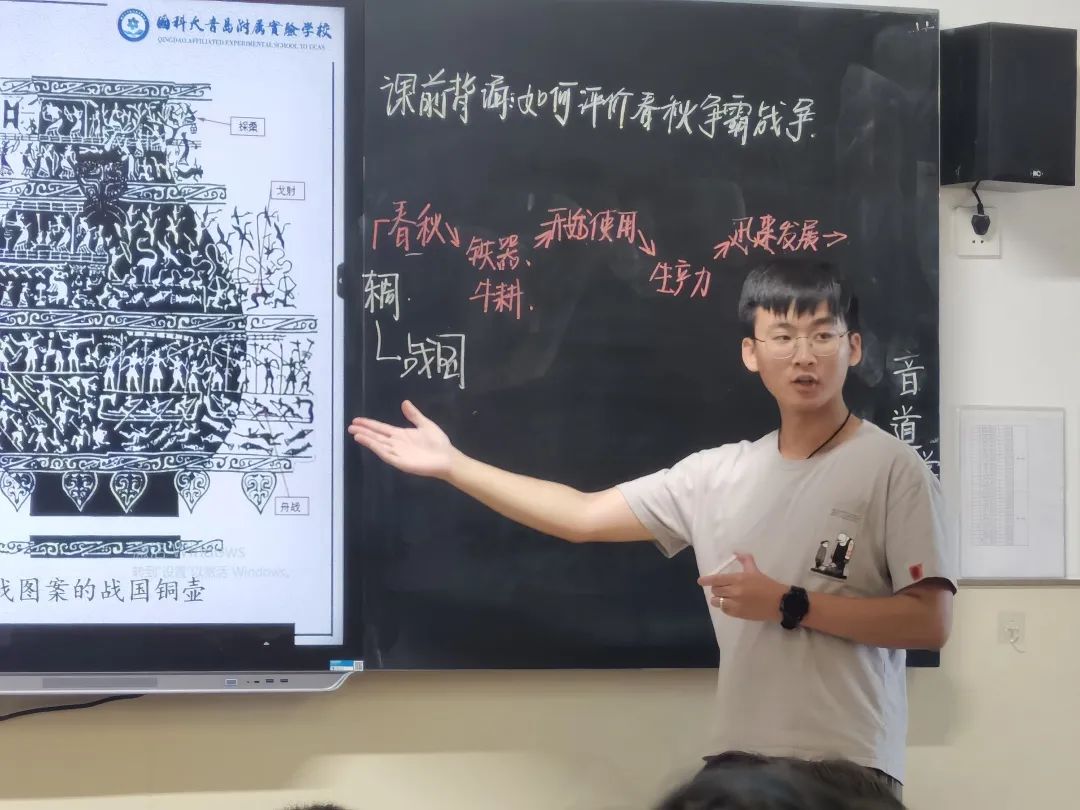 国科大青岛附属实验学校
QINGDAO AFFILIATED EXPERIMENTAL SCHOOL TO UCAS
采桑
弋射
舟战
Windows
转到"设置"以激活 Windows。
战图案的战国铜壶
课前背诵:如何评价春秋争霸战争.
春秋
铁器.
牛耕.
开始使用
生产力
迅速发展
战国
音
道